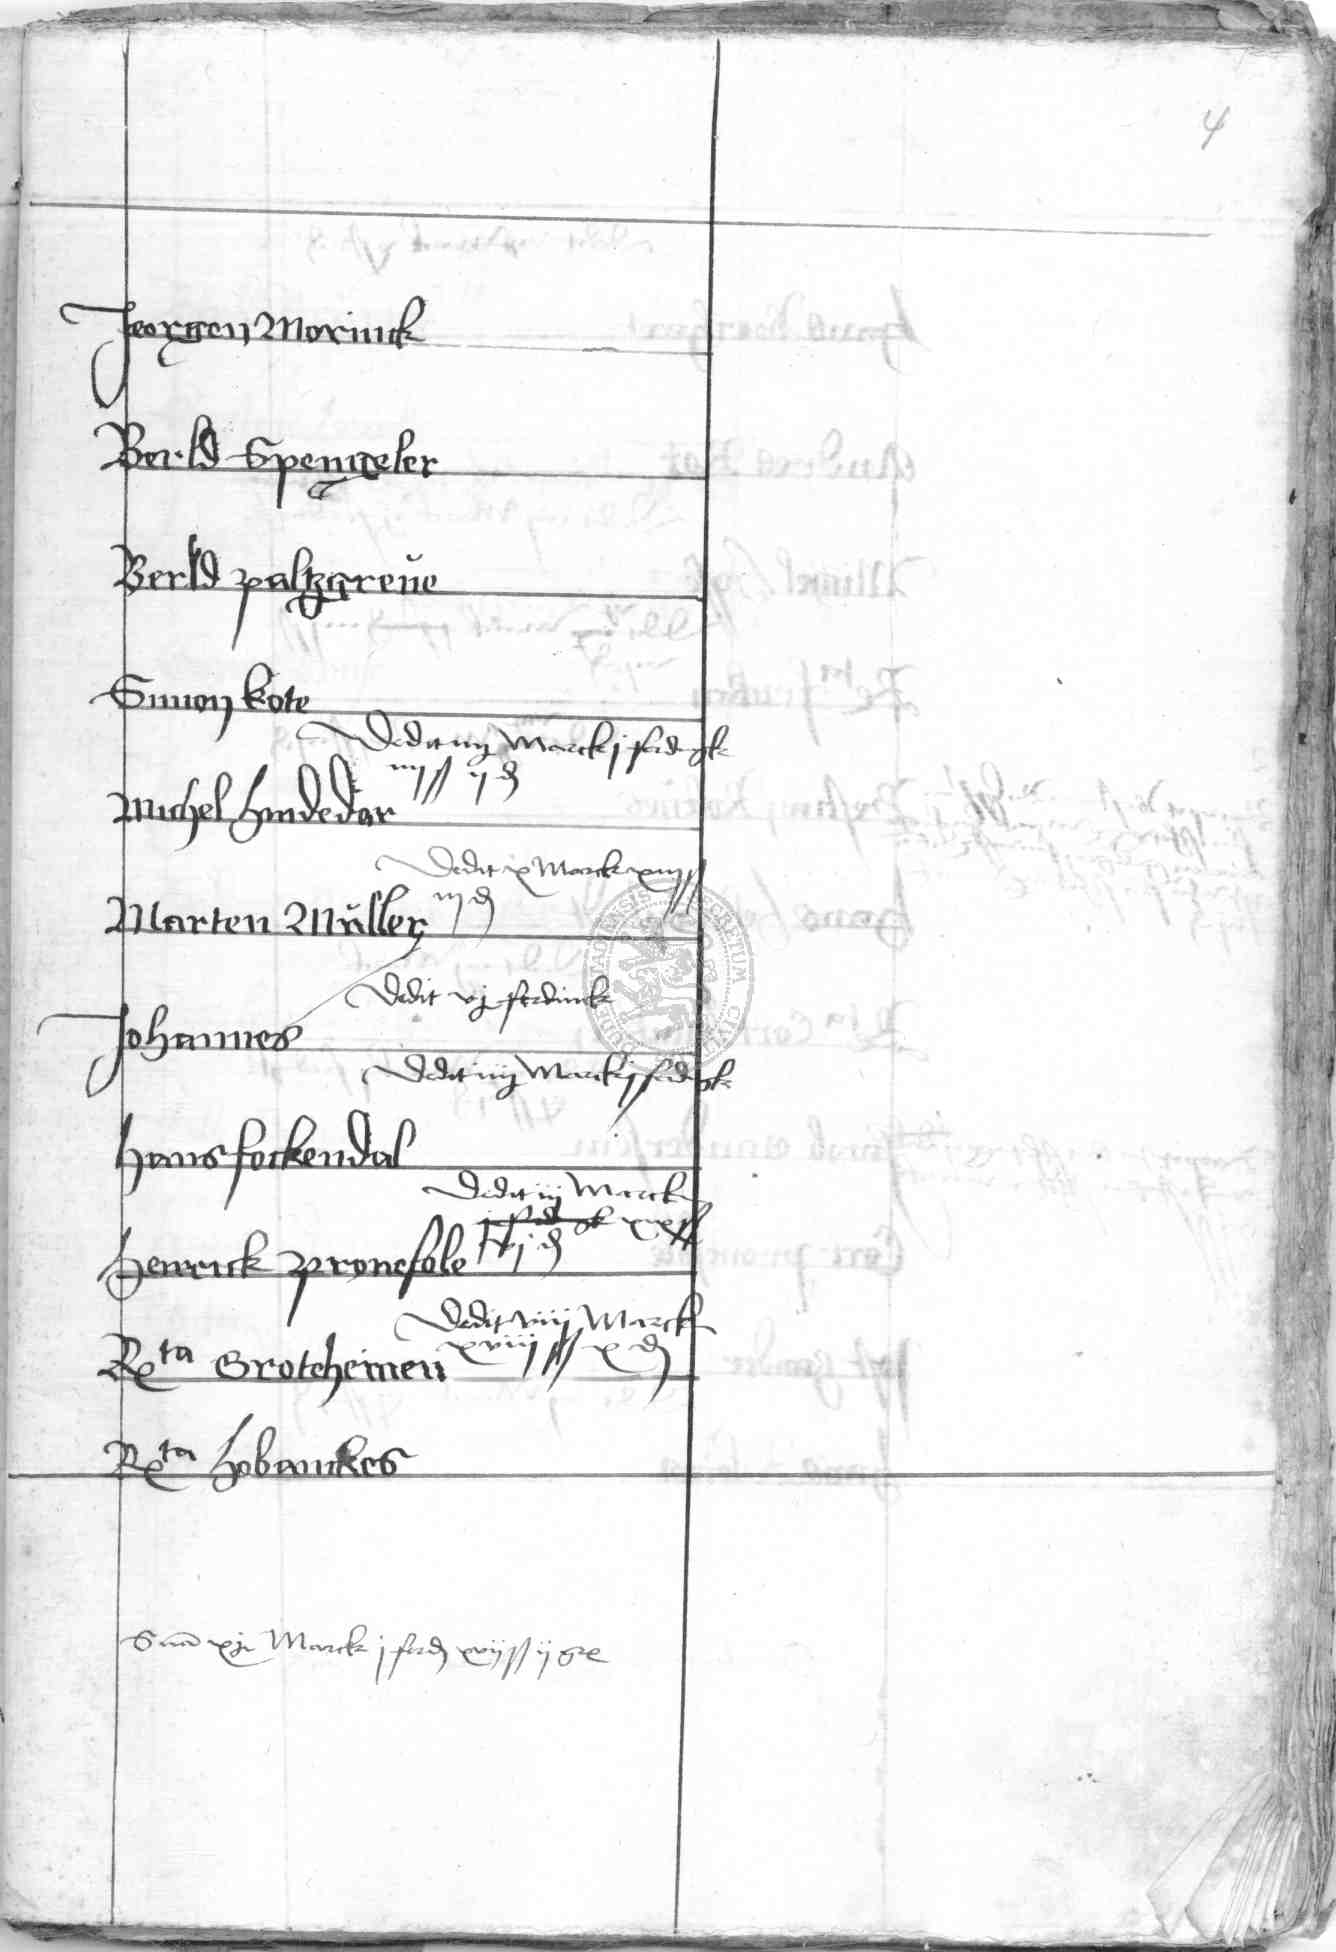 4
Jeorgen Morinck
Berld Spengeler
Berld paltzgreve
Simon kote
Dedit iiij Marck j ferdigk
iiij ß ij d
Michel hindedar
Dedit ix Marck xiiij ß
iij d
Marten Müller
Dedit vj ferdinck
Johannes
Dedit iiij Marck j ferdigk
Hans fockendal
Dedit iij Marck
xx ß
j d
Henrick pronefole
Dedit viij Marck
xviij ß x d
Rta Grotehennen
Rta hobanckes
Marck j ferd xvij ß ij